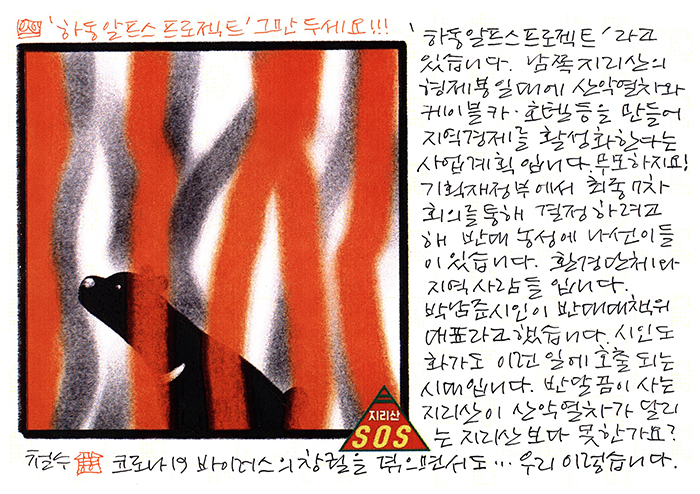 '하동알프스 프로젝트' 그만 두세요!!!
'하동알프스프로젝트'라고
있습니다. 남쪽지리산의
형제봉일대에 산악열차와
케이블카·호텔등을 만들어
지역경제를 활성화한다는
사업계획입니다. 무모하지요!
기획재정부에서 최종 7차
회의를통해 결정하려고
해 반대농성에 나선이들
이 있습니다. 환경단체와
지역사람들입니다.
박남준시인이 반대대책위
대표라고했습니다. 시인도
화가도 이런 일에 호출되는
시대입니다. 반달곰이 사는
지리산이 산악열차가 달리
는 지리산보다 못한가요?
지리산
SOS
철수 코로나19 바이러스의창궐을 겪으면서도… 우리 이렇습니다.